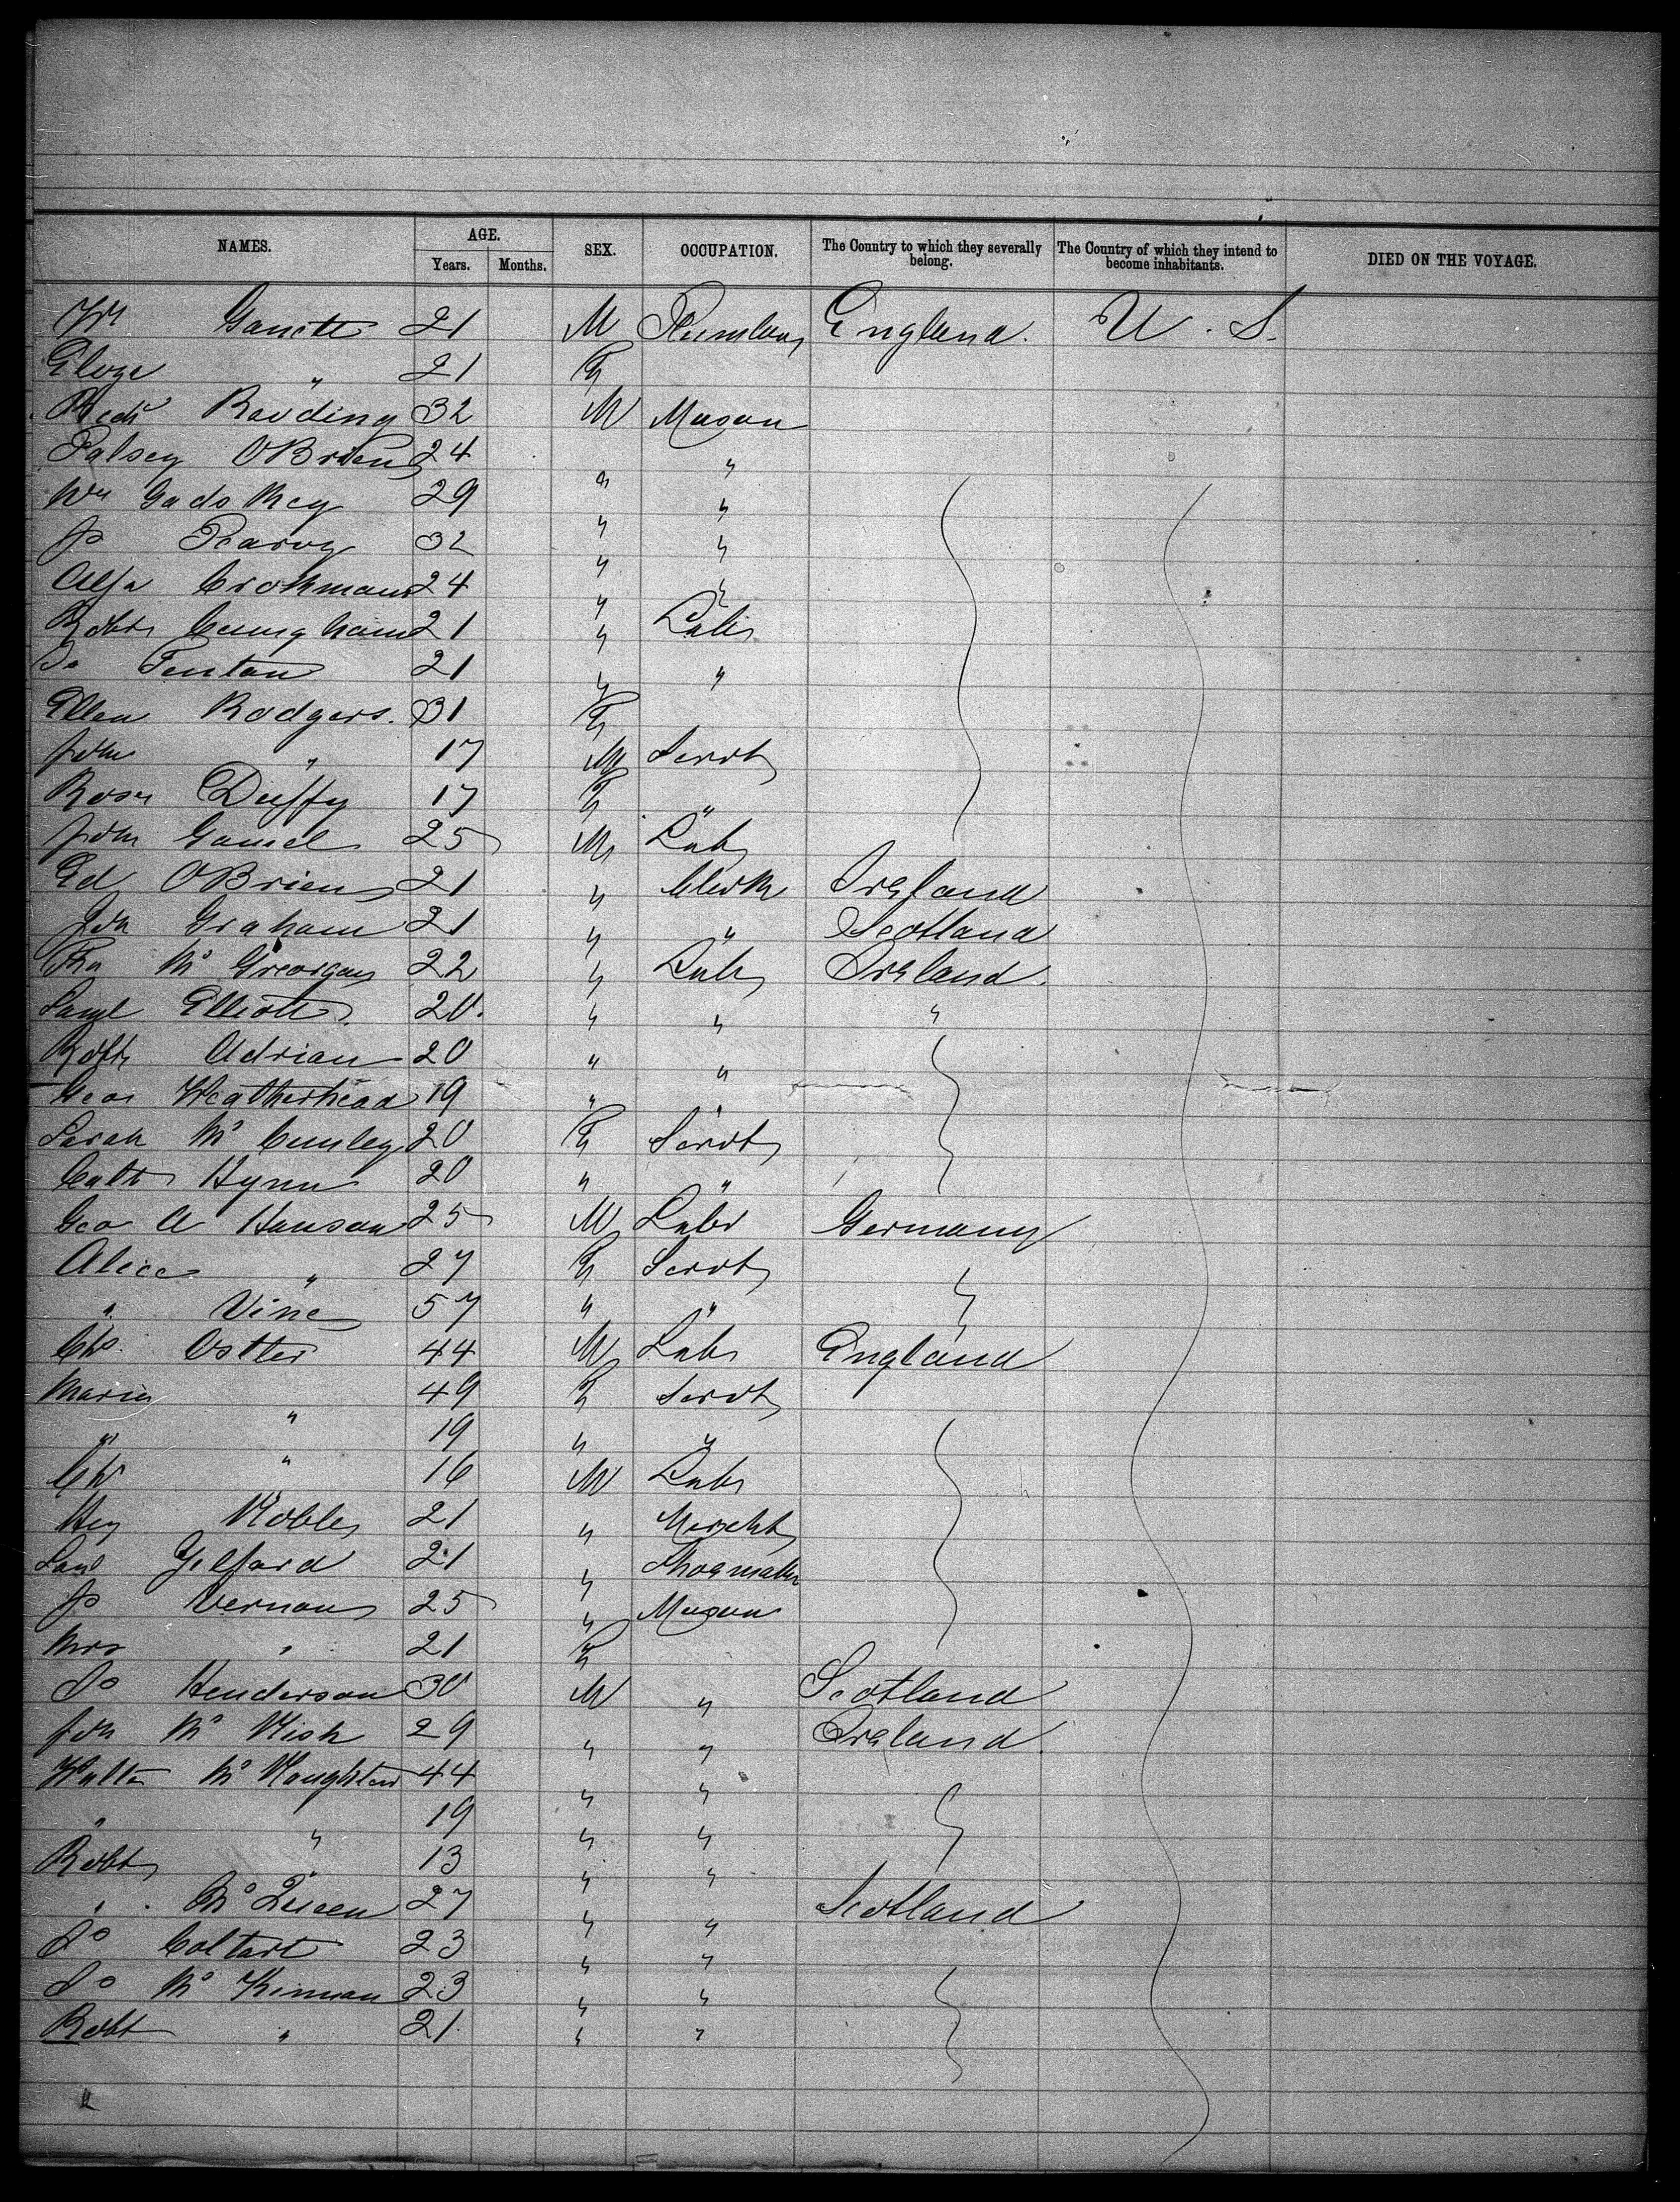 NAMES. AGE. SEX. OCCUPATION. The Country to which they severally belong. The Country of which they intend to become inhabitants. DIED ON THE VOYAGE.
Years. Months.
Wm 21 M England. U. S.
Eloze " 21 F
Redd 32 M Mason
Patsey OBrien 24 " "
Wm 29 " "
Jo 32 " "
Alfd 24 " "
Robt 21 " Labr
Jo Fenton 21 " "
Ellen Rodgers. 31 F
John " 17 M Servt
Rosa Duffy 17 F "
John 25 M Labr
Ed OBrien 21 " Clerk Ireland
Jon Graham 21 " " Scotland
22 " Labr Ireland.
Saml Elliott 20. " " "
Robt Adrian 20 " "
Geo Weatherhead 19 " "
Sarah Mc Cumley 20 F Servt
Cath Hynn 20 " "
Geo A Hanson 25 M Labr Germany
Alice " 27 F Servt
" Vine 57 " "
Chs. Ostler 44 M Labr England
Maria " 49 F Servt
" " 19 " "
Chs " 16 M Labr
Hey Noble 21 " Mercht
Saml Gelfard 21 " Shoemaker
Jo Vernon 25 " Mason
Mrs " 21 F
Jo Henderson 30 M " Scotland
Jon Mc Nish 29 " " Ireland
Walter Mc Naughton 44 " "
" " 19 " "
Robt " 13 " "
" Mc Queen 27 " " Scotland
Jo Coltart 23 " "
Jo Mc Kinnan 23 " "
Robt " 21. " "